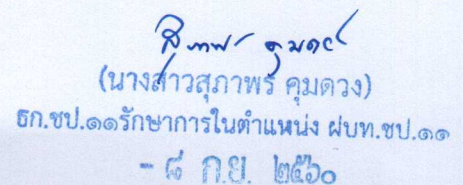 (นางสาวสุภาพร คุมดวง)
ธก.ชป.๑๑รักษาการในตำแหน่ง ผบท.ชป.๑๑
- ๘ ก.ย. ๒๕๖๐